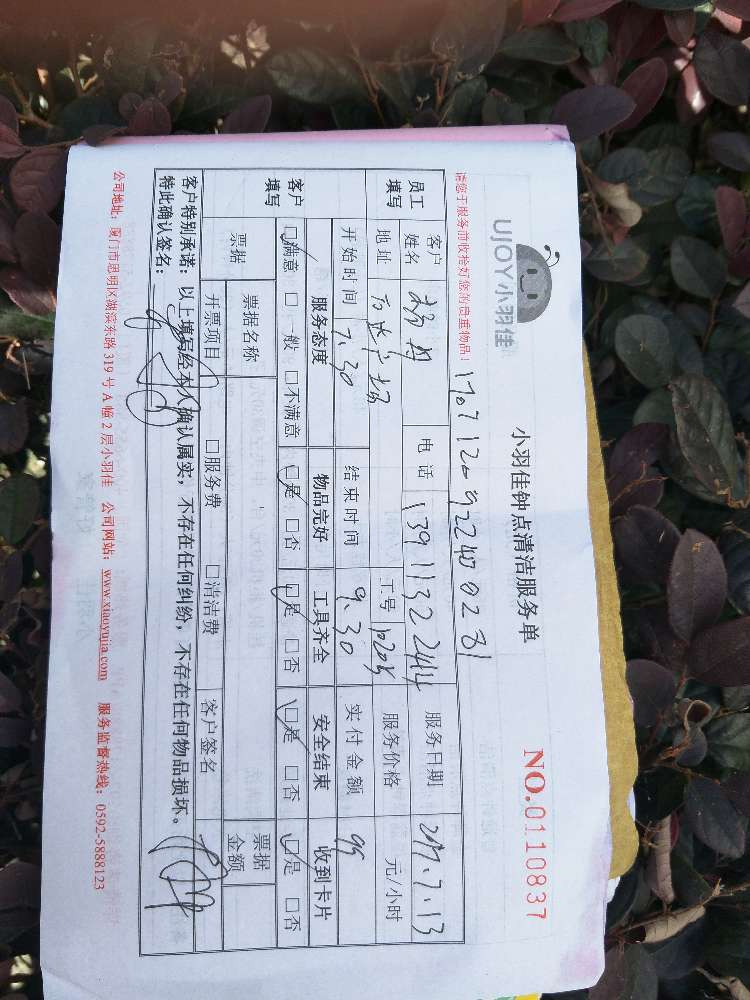 UJOY小羽佳
小羽佳钟点清洁服务单
NO.0110837
请您于服务前收拾好您的贵重物品!
员工填写 客户姓名 电话 13911322414 服务日期 2017.7.13
地址 工号 服务价格 元/小时
开始时间 7.30 结束时间 9.30 实付金额 99
客户填写 服务态度 物品完好 工具齐全 安全结束 收到卡片
☑满意 □一般 □不满意 ☑是 □否 ☑是 □否 ☑是 □否 ☑是 □否
票据 票据名称 票据金额
开票项目 □服务费 □清洁费 客户签名
客户特别承诺:以上填写经本人确认属实,不存在任何纠纷,不存在任何物品损坏。
特此确认签名:
公司地址:厦门市思明区湖滨东路319号A幢2层小羽佳 公司网站:www.xiaoyujia.com 服务监督热线:0592-5888123